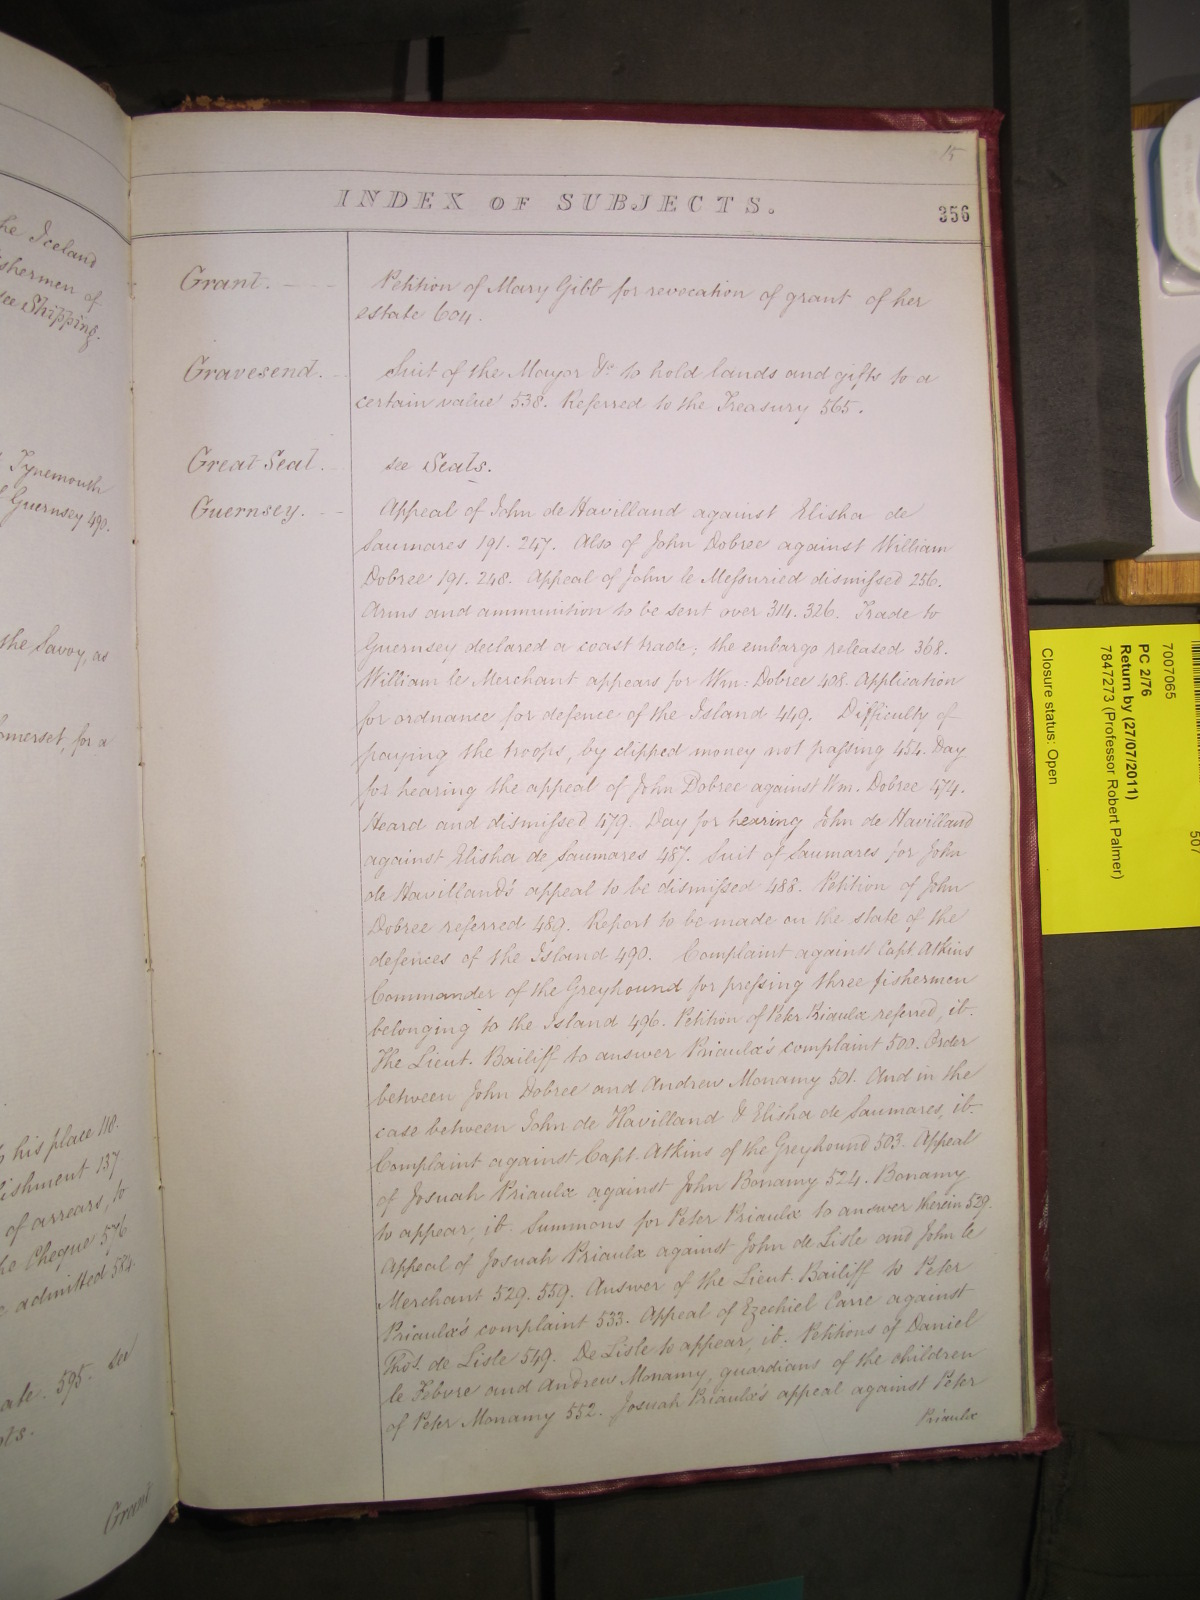 he Iceland
shermen of
see Shipping.
Tynemouth
Guernsey 490.
the Savoy, as
omerset, for a
his place 118.
lishment 137
of arrears, to
he Cheque 576
admitted 584.
ate. 595. see
ots.
Grant
15
INDEX OF SUBJECTS.
356
Grant. Petition of Mary Gibb for revocation of grant of her
estate 604.
Gravesend. Suit of the Mayor &c. to hold lands and gifts to a
certain value 538. Referred to the Treasury 565.
Great Seal. see Seals.
Guernsey. Appeal of John de Havilland against Elisha de
Saumares 191. 247. Also of John Dobree against William
Dobree 191. 248. Appeal of John le Messuried dismissed 256.
Arms and ammunition to be sent over 314. 326. Trade to
Guernsey declared a coast trade; the embargo released 368.
William le Merchant appears for Wm: Dobree 408. Application
for ordnance for defence of the Island 449. Difficulty of
paying the troops, by clipped money not passing 454. Day
for hearing the appeal of John Dobree against Wm. Dobree 474.
Heard and dismissed 479. Day for hearing John de Havilland
against Elisha de Saumares 487. Suit of Saumares for John
de Havilland's appeal to be dismissed 488. Petition of John
Dobree referred 489. Report to be made on the state of the
defences of the Island 490. Complaint against Capt. Atkins
Commander of the Greyhound for pressing three fishermen
belonging to the Island 496. Petition of Peter Priaulx referred, ib.
The Lieut. Bailiff to answer Priaulx's complaint 500. Order
between John Dobree and Andrew Monamy 501. And in the
case between John de Havilland & Elisha de Saumares, ib.
Complaint against Capt. Atkins of the Greyhound 503. Appeal
of Josuah Priaulx against John Bonamy 524. Bonamy
to appear, ib. Summons for Peter Priaulx to answer therein 529.
Appeal of Josuah Priaulx against John de Lisle and John le
Merchant 529. 559. Answer of the Lieut. Bailiff to Peter
Priaulx's complaint 533. Appeal of Ezechiel Carre against
Thos. de Lisle 549. De Lisle to appear, ib. Petitions of Daniel
le Febvre and Andrew Monamy, guardians of the children
of Peter Monamy 552. Josuah Priaulx's appeal against Peter
Priaulx
507
7007065
PC 2/76
Return by (27/07/2011)
7847273 (Professor Robert Palmer)
Closure status: Open